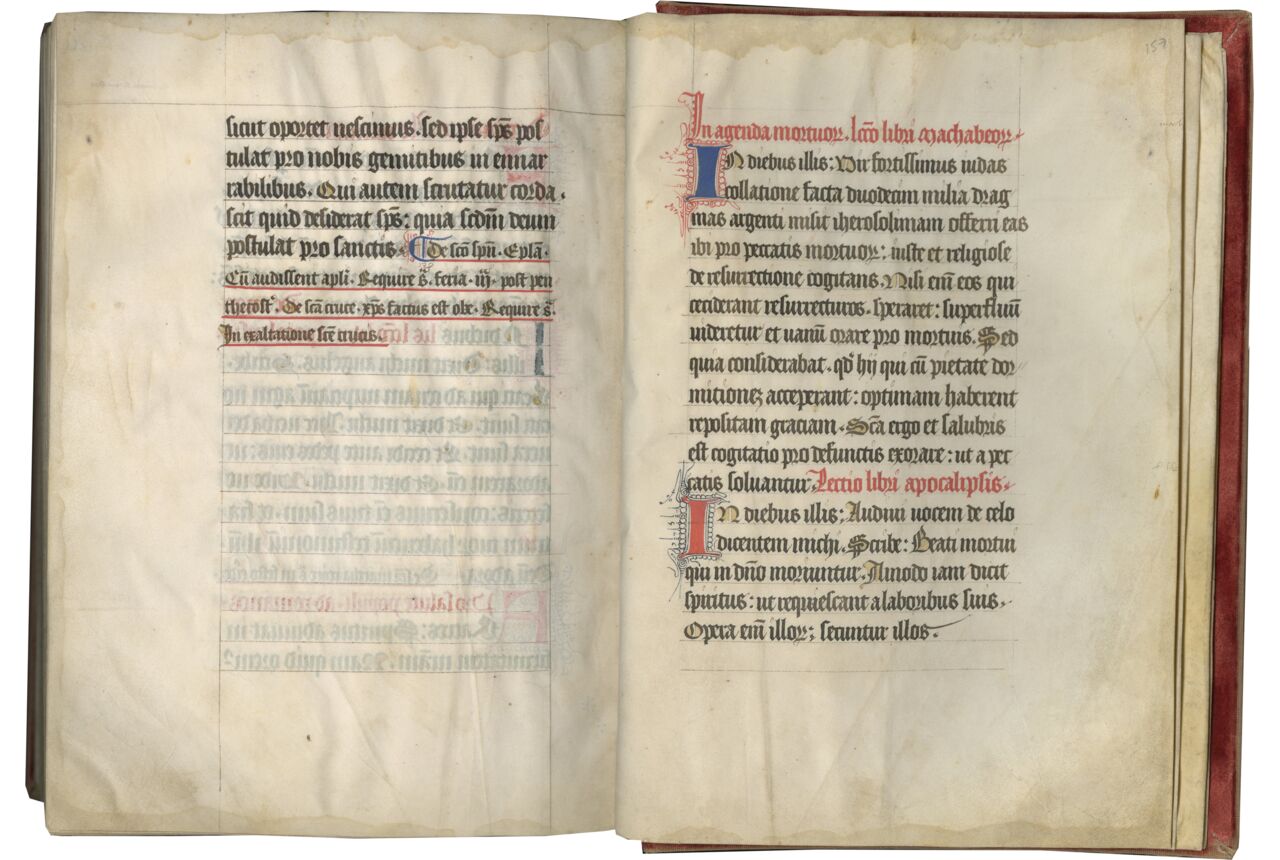 sicut oportet nescimus. sed ipse sp̄s pos
tulat pro nobis gemitibus in ennar
rabilibus. Qui autem scrutatur corda.
scit quid desiderat sp̄s: quia scd̄m deum
postulat pro sanctis. De sc̄o sp̄u. Ep̄la.
Cū audissent apl̄i. Require s̄. feria. iij. post pen
thecost. De sc̄a cruce. xp̄s factus est obe. Require s̄.
In exaltatione sc̄e crucis.
157
In agenda mortuoꝝ. lc̄co libri machabeoꝝ.
IN diebus illis: Vir fortissimus iudas
collatione facta duodecim milia drag
mas argenti misit iherosolimam offerri eas
ibi pro peccatis mortuoꝝ: iuste et religiose
de resurrectione cogitans. Nisi enī eos qui
ceciderant resurrecturos. speraret: superfluū
uideretur et uanū orare pro mortuis. Sed
quia considerabat. qd̄ hij qui cū pietate dor
mitioneꝫ acceperant: optimam haberent
repositam graciam. Sc̄a ergo et salubris
est cogitatio pro defunctis exorare: ut a pec
catis soluantur. Lectio libri apocalipsis.
IN diebus illis: Audiui uocem de celo
dicentem michi. Scribe: Beati mortui
qui in dn̄o moriuntur. Amodo iam dicit
spiritus: ut requiescant a laboribus suis.
Opera enī illoꝝ: secuntur illos.